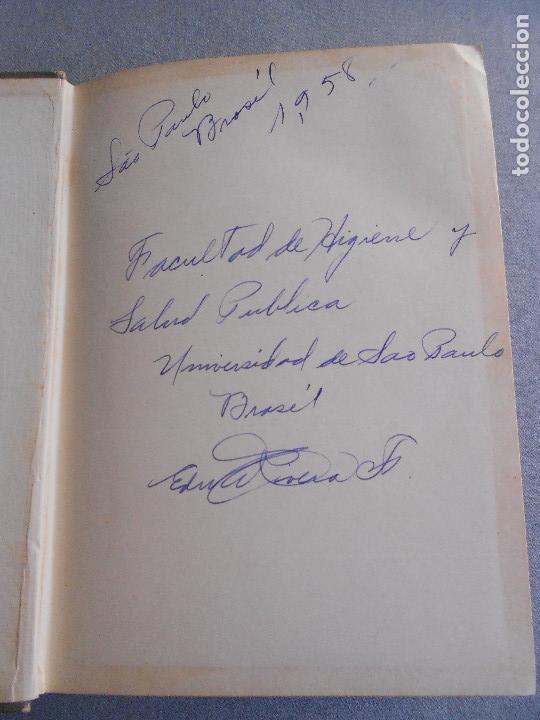 São Paulo
Brasil
1958
Facultad de Higiene y
Salud Publica
Universidad de Sao Paulo
Brasil
Rivera
todocoleccion